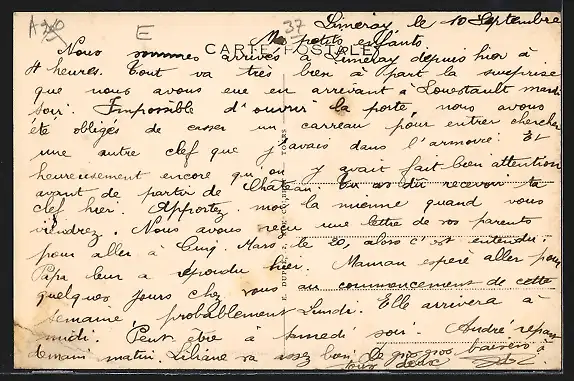 A 200
E
37
Limeray le 10 Septembre
CARTE POSTALE
Mes petits enfants
Nous sommes arrivés à Limeray depuis hier à
4 heures. Tout va très bien à part la surprise
que nous avons eue en arrivant à Louestault mardi
soir. Impossible d'ouvrir la porte nous avons
été obligés de casser un carreau pour entrer chercher
une autre clef que j'avais dans l'armoire. Et
heureusement encore qu'on y avait fait bien attention
avant de partir de Château. Tu as dû recevoir ta
clef hier. Apportez moi la mienne quand vous
viendrez. Nous avons reçu une lettre de vos parents
pour aller à Cinq Mars le 20, alors c'est entendu.
Papa leur a répondu hier. Maman espère aller pour
quelques jours chez vous au commencement de cette
semaine, probablement Lundi. Elle arrivera à
midi. Peut être à Samedi soir. André repart
demain matin. Liliane va assez bien. De gros gros baisers à
tous deux